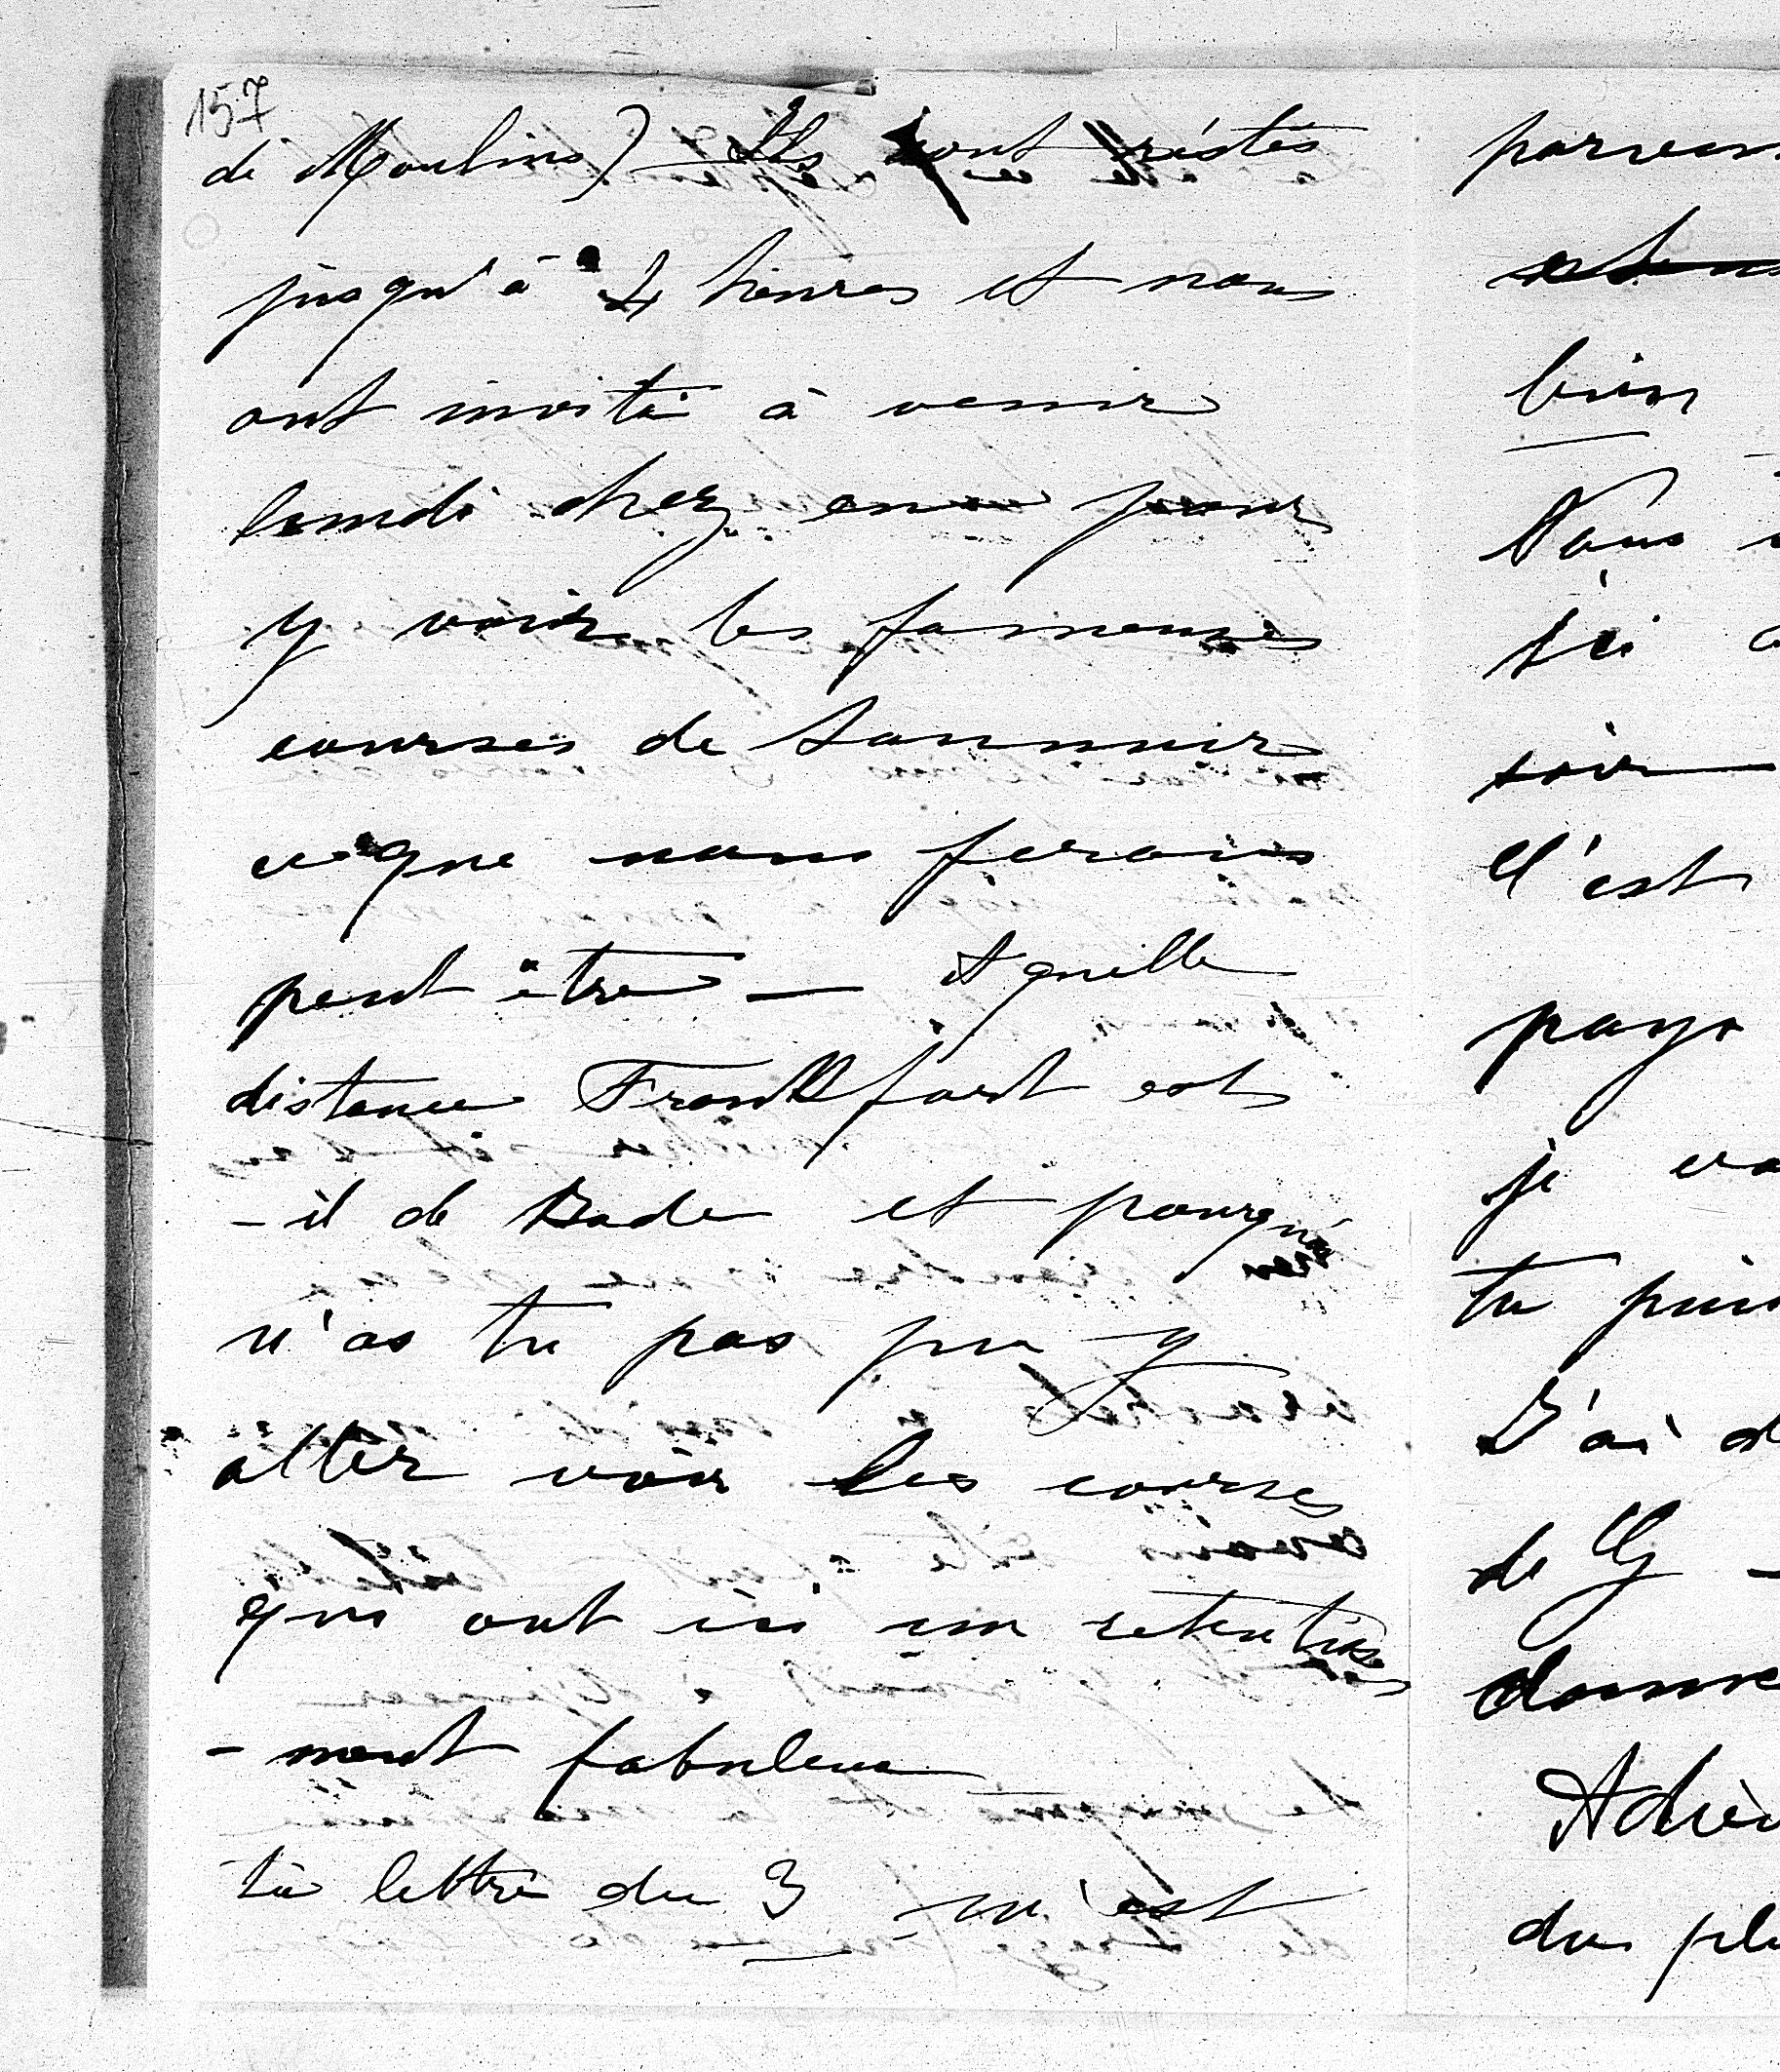 157
de Moulins) _ Ils sont restés
jusqu'à 4 heures et nous
ont invité à venir
lundi chez eux pour
y voir les fameuses
courses de Saumur
ce que nous ferons
peut être _ A quelle
distance Frankfort est
- il de Bade et pourquoi
n'as tu pas pu y
aller voir les courses
qui ont ici un retentisse
- ment fabuleux
ta lettre du 3 m'est
bien
Nous
si
soir
C'est
pays
je
tu
J'ai
de G -
donne
du